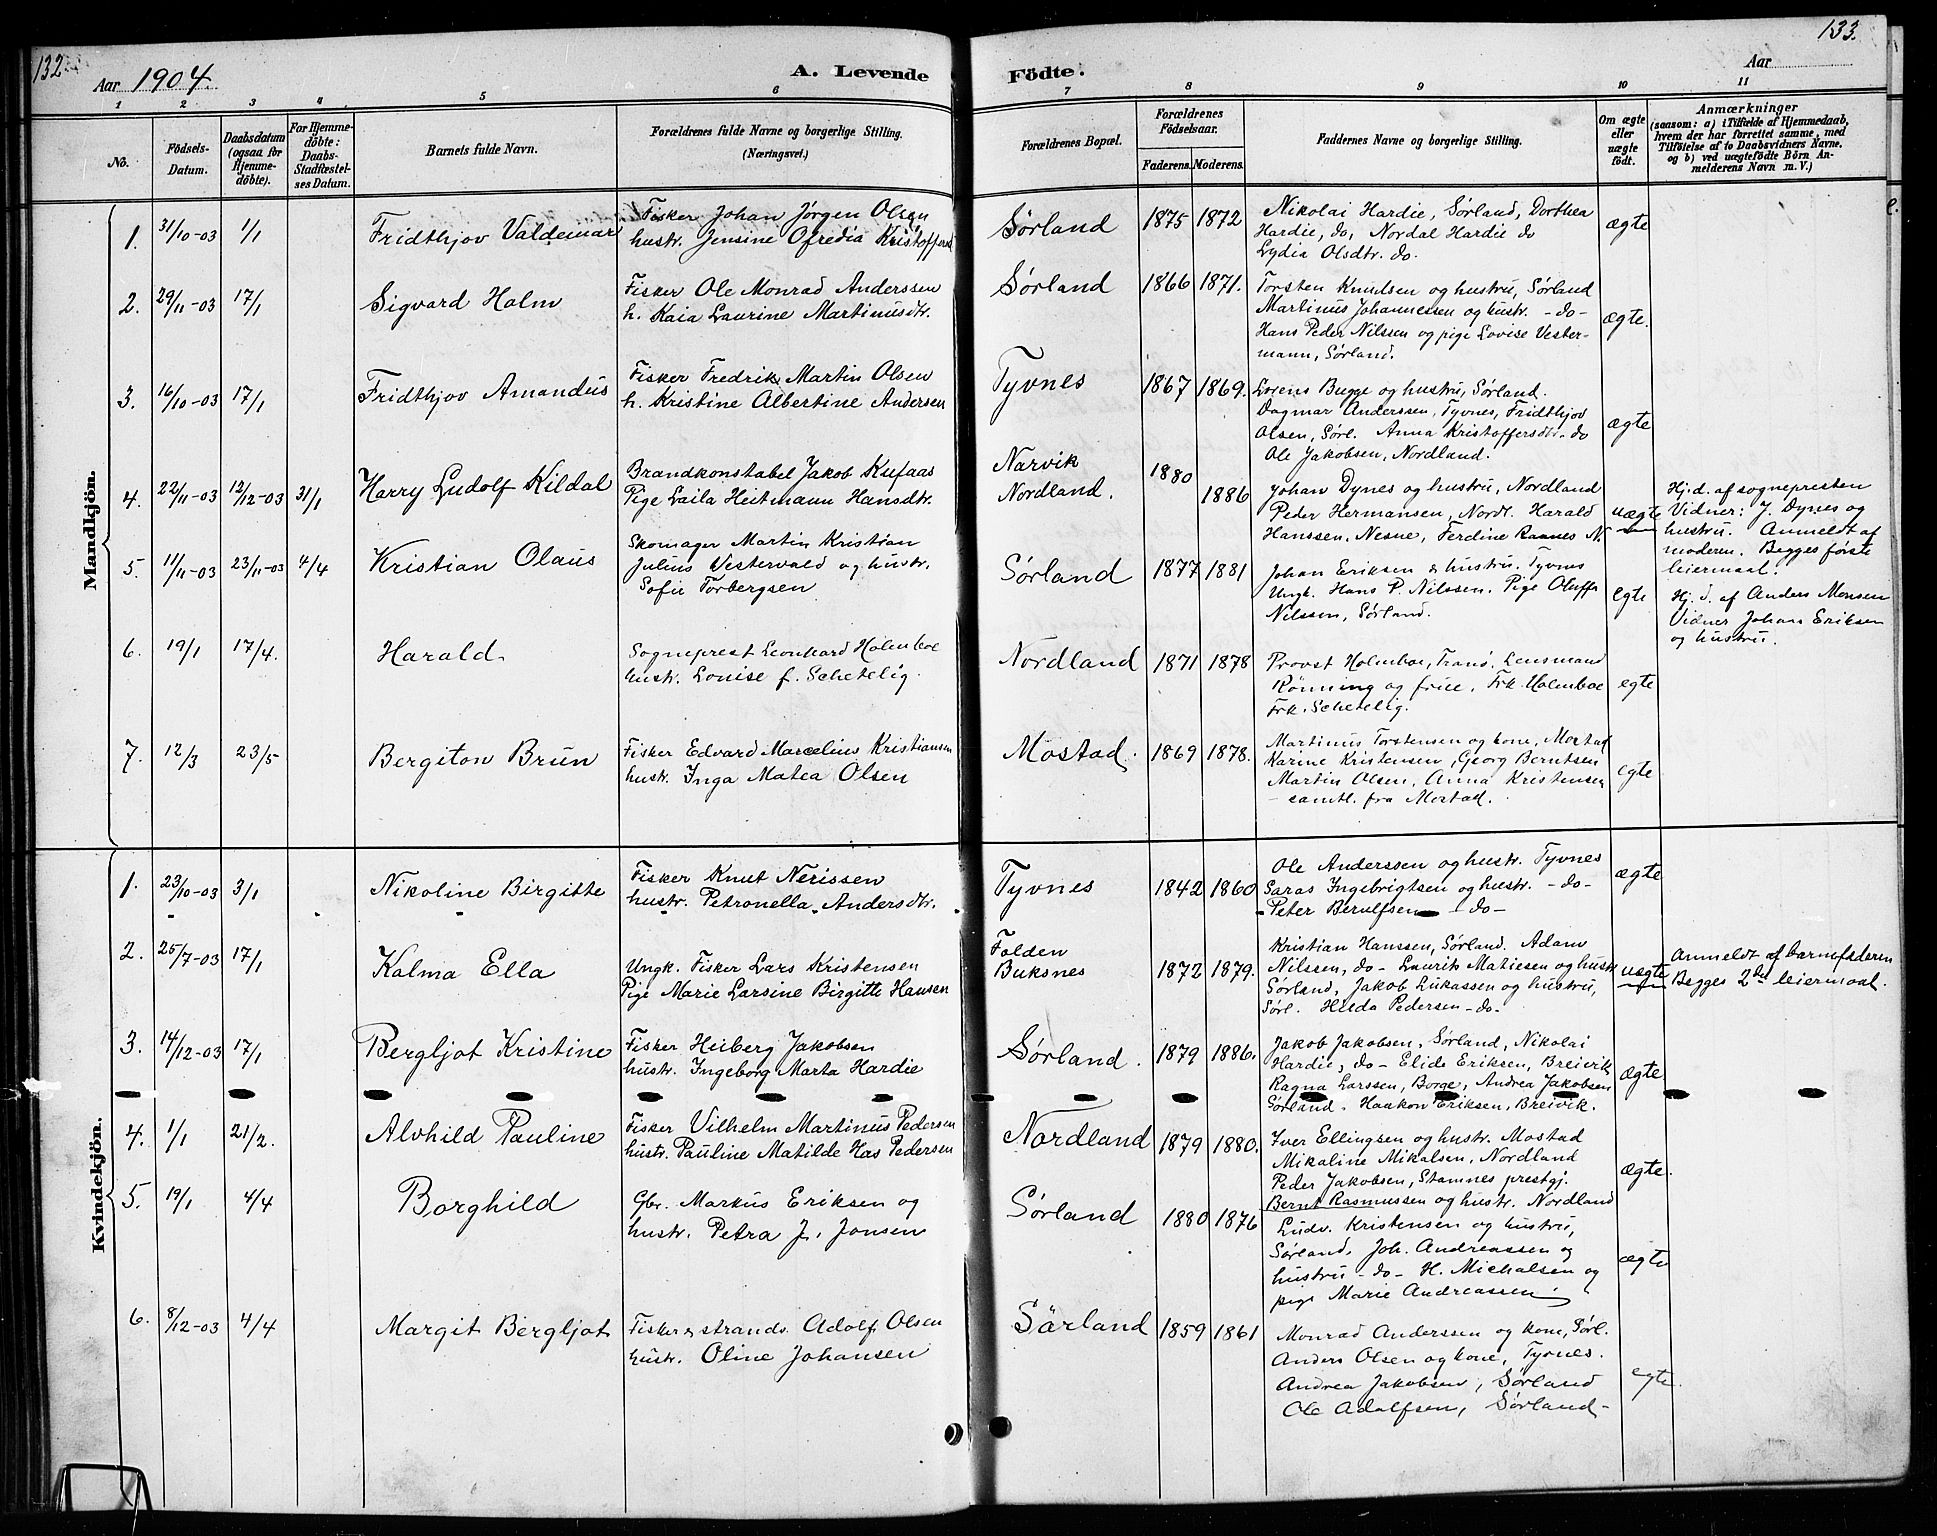 132
Aar 1904.
A. Levende
Födte.
Aar
133.
1
2
3
4
5
6
7
8
9
10
11
No.
Födsels-
Datum.
Daabsdatum
(ogsaa for
Hjemme-
döbte).
For Hjemme-
döbte:
Daabs-
Stadfæstel-
ses Datum.
Barnets fulde Navn.
Forældrenes fulde Navne og borgerlige Stilling.
(Næringsvei.)
Forældrenes Bopæl.
Forældrenes
Födselsaar.
Faderens.
Moderens.
Faddernes Navne og borgerlige Stilling.
Om ægte
eller
uægte
födt.
Anmærkninger
(saasom: a) i Tilfælde af Hjemmedaab,
hvem der har forrettet samme, med
Tilföielse af to Daabsvidners Navne.
og b) ved uægtefödte Börn An-
melderens Navn m. V.)
Mandkjön.
1. 31/10-03 1/1 Fridthjov Valdemar
Fisker Johan Jørgen Olsen
hustr. Jensine Ofredia Kristoffersd
Sørland 1875 1872
Nikolai Hardie, Sørland, Dorthea
Hardie, do, Nordal Hardie do
Lydia Olsdtr. do.
ægte
2. 29/11-03 17/1 Sigvard Holm
Fisker Ole Monrad Anderssen
h. Kaia Laurine Martinusdtr.
Sørland 1866 1871.
Torsten Knudsen og hustru, Sørland
Martinus Johannessen og hustr. - do -
Hans Peder Nilssen og pige Lovise Vester-
mann, Sørland.
ægte.
3. 16/10-03 17/1 Fridthjov Amandus
Fisker Fredrik Martin Olsen
h. Kristine Albertine Andersen
Tyvnes 1867 1869.
Lorens Bugge og hustru, Sørland.
Dagmar Anderssen, Tyvnes, Fridthjov
Olsen, Sørl. Anna Kristoffersdtr. do
Ole Jakobsen, Nordland.
ægte
4. 22/11-03 12/12-03 31/1 Harry Ludolf Kildal
Brandkonstabel Jakob Kufaas
Pige Laila Heitmann Hansdtr.
Narvik
Nordland. 1880 1886
Johan Dynes og hustru, Nordland
Peder Hermansen, Nordl. Harald
Hanssen, Nesne, Ferdine Raanes N.
uægte
Hj.d. af sognepresten
Vidner: J. Dynes og
hustru. Anmeldt af
moderen. Begges første
leiermaal.
5. 11/11-03 23/11-03 4/4 Kristian Olaus
Skomager Martin Kristian
Julius Vestervald og hustr.
Sofie Torbergsen
Sørland 1877 1881
Johan Eriksen & hustru. Tyvnes
Ungk. Hans P. Nilssen. Pige Oluffa
Nilssen, Sørland.
egte
Hj. d. af Anders Monsen
Vidner Johan Eriksen
og hustru.
6. 19/1 17/4. Harald
Sogneprest Leonhard Holmboe
hustr. Louise f. Schetelig.
Nordland 1871 1878
Provst Holmboe, Tranø. Lensmand
Rønning og frue. Frk. Holmboe
Frk. Schetelig.
egte
7. 12/3 23/5 Bergiton Brun
Fisker Edvard Marcelius Kristiansen
hustr. Inga Matea Olsen
Mostad. 1869 1878.
Martinus Torstensen og kone, Mostad
Karine Kristensen, Georg Berntsen
Martin Olsen, Anna Kristensen
- samtl. fra Mostad.
egte
Kvindekjön.
1. 23/10-03 3/1 Nikoline Birgitte
Fisker Knut Nerissen
hustr. Petronella Andersdtr.
Tyvnes 1842 1860
Ole Anderssen og hustr. Tyvnes
Saras Ingebrigtsen og hustr. - do -
Peter Berulfsen - do -
ægte
2. 25/7-03 17/1 Kalma Ella
Ungk. Fisker Lars Kristensen
Pige Marie Larsine Birgitte Hansen
Folden
Buksnes 1872 1879.
Kristian Hanssen, Sørland. Adam
Nilssen, do - Laurits Matiesen og hustr
Sørland, Jakob Lukassen og hustru,
Sørl. Hilda Pedersen - do -
uægte
Anmeldt af barnefaderen
Begges 2det leiermaal.
3. 14/12-03 17/1 Bergljot Kristine
Fisker Heiberg Jakobsen
hustr. Ingeborg Marta Hardie
Sørland. 1879 1886.
Jakob Jakobsen, Sørland, Nikolai
Hardie, do - Elide Eriksen, Breivik
Ragna Larssen, Borge, Andrea Jakobsen
Sørland. Haakon Eriksen, Breivik.
ægte
4. 1/1 21/2. Alvhild Pauline
Fisker Vilhelm Martinus Pedersen
hustr. Pauline Matilde Has Pedersen
Nordland 1879 1880.
Iver Ellingsen og hustr. Mostad
Mikaline Mikalsen, Nordland
Peder Jakobsen, Stamnes prestgj.
ægte.
5. 19/1 4/4 Borghild
Gbr. Markus Eriksen og
hustr. Petra J. Jonsen
Sørland 1880 1876
Bernt Rasmussen og hustr. Nordland
Ludv. Kristensen og hustru,
Sørland. Joh. Andreassen og
hustru - do - H. Michalsen og
pige Marie Andreassen.
ægte
6. 8/12-03 4/4 Margit Bergljot
Fisker & strands. Adolf Olsen
hustr. Oline Johansen
Sørland 1859 1861
Monrad Anderssen og kone, Sørl.
Anders Olsen og kone, Tyvnes.
Andrea Jakobsen, Sørland
Ole Adolfsen, Sørland -
egte